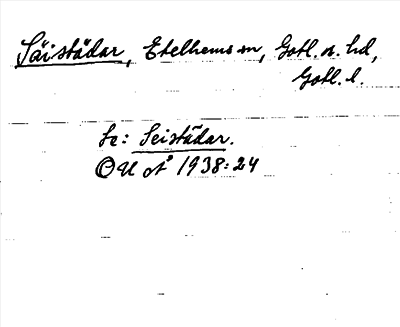 Säistädar, Etelhems sn, Gotl. n. hd,
Gotl. l.
Se: Seistädar.
OU åt 1938:24